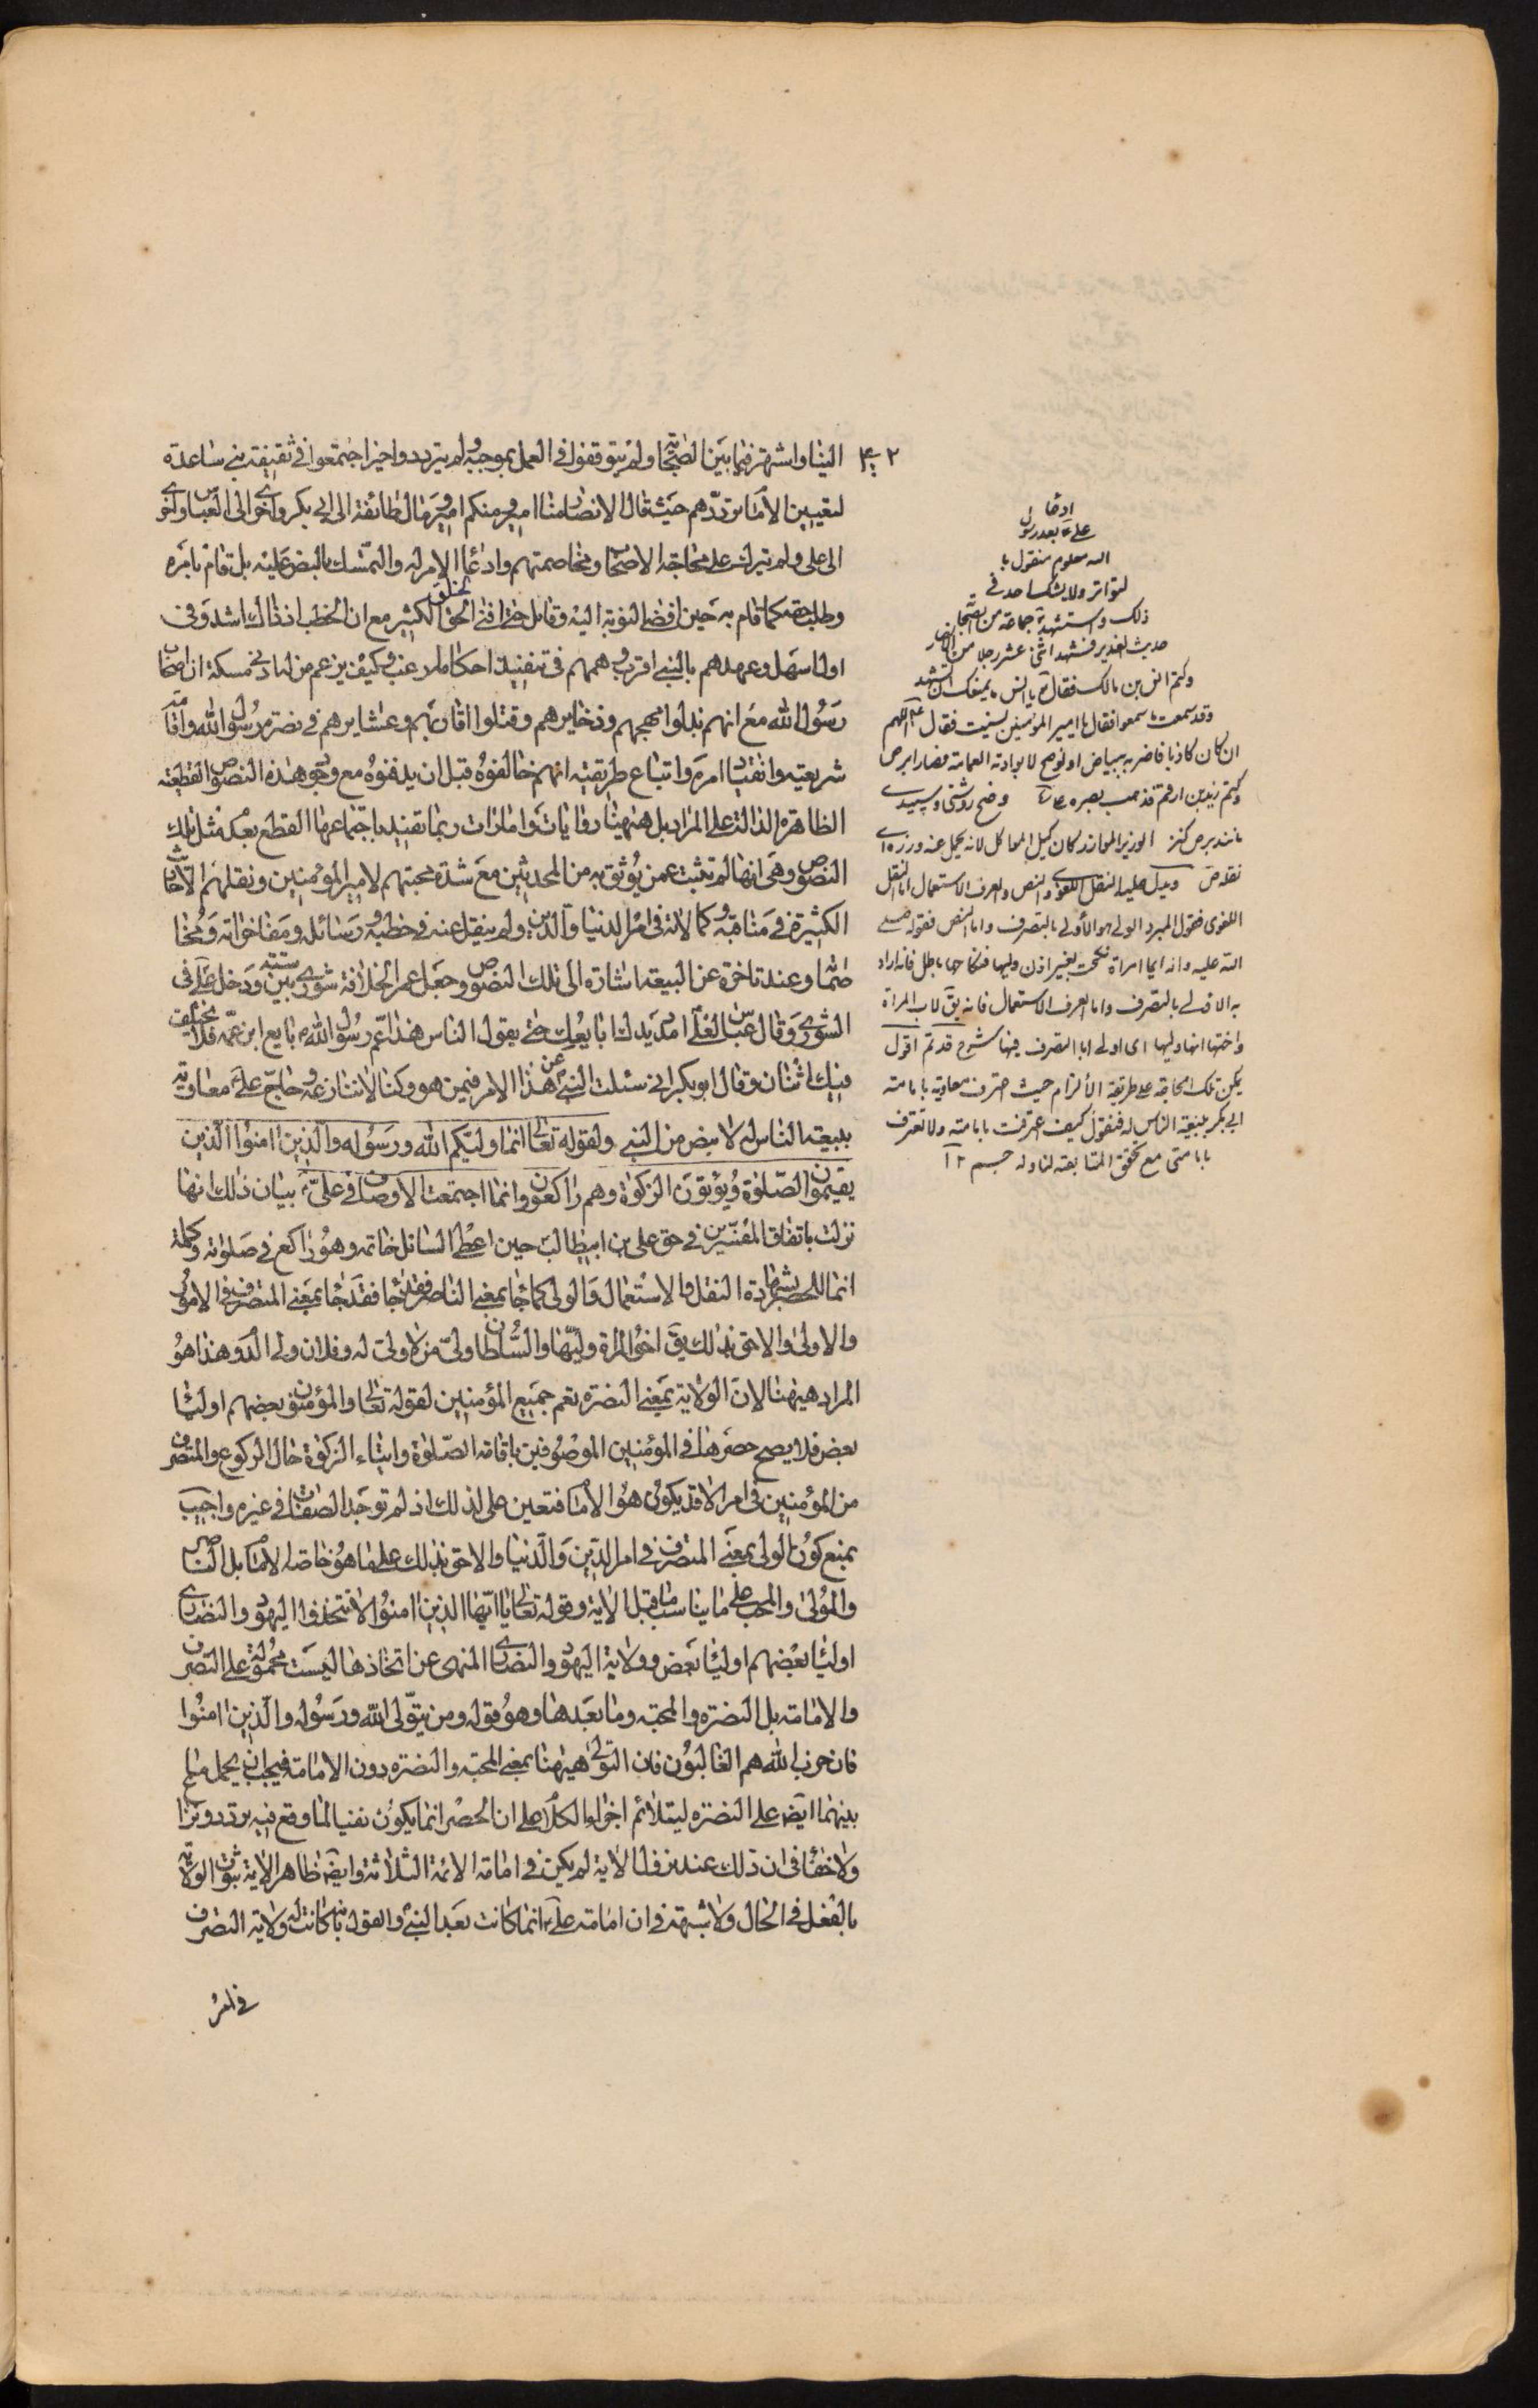 ٤٠٢
الينا واشتهر فيما بين الصحابة ولم يتوقفوا في العمل بموجبه ولم يترددوا حين اجتمعوا في ثقيفة بني ساعدة
لتعيين الامام ترددهم حيث قال الانصار منا امير ومنكم امير ومال طائفة الى ابي بكر واخرى الى العباس واخرى
الى علي ولم يترك علي محاجة الاصحاب ومخاصمتهم وادعاء الامر له والتمسك بالنص عليه بل قام بامره
وطلب حقه كما قام به حين افضى النوبة اليه وقاتل حتى افنى الخلق الكثير مع ان الخطب اذ ذاك اشد وفي
اول الامر سهل وعهدهم بالنبي اقرب وهممهم في تنفيذ احكامه ارغب وكيف يزعم من له ادنى مسكة ان اصحاب
رسول الله مع انهم بذلوا مهجهم وذخايرهم وقتلوا اقاربهم وعشايرهم في نصرة رسول الله واقامة
شريعته وانقياد امره واتباع طريقته انهم خالفوه قبل ان يدفنوه مع وجود هذه النصوص القطعية
الظاهرة الدالة على المراد بل ههنا روايات وامارات ربما تفيد باجتماعها القطع بعدم مثل تلك
النصوص وهي انها لم تثبت عمن يوثق به من المحدثين مع شدة محبتهم لامير المؤمنين ونقلهم الاحاديث
الكثيرة في مناقبه وكمالاته في امر الدنيا والدين ولم ينقل عنه في خطبه ورسائله ومفاخراته ومخا
صماته وعند تاخره عن البيعة اشارة الى تلك النصوص وجعل عمر الخلافة شورى بين ستة ودخل علي في
الشورى وقال عباس لعلي امدد يدك ابايعك حتى يقول الناس هذا عم رسول الله بايع ابن عمه فلا يختلف
فيك اثنان وقال ابو بكر اني سئلت النبي عن هذا الامر فيمن هو وكنا لا ننازعه وحاج علي معاوية
ببيعة الناس له لا بنص من النبي ولقوله تعالى انما وليكم الله ورسوله والذين امنوا الذين
يقيمون الصلوة ويؤتون الزكوة وهم راكعون وانما اجتمعت الاوصاف في علي بيان ذلك انها
نزلت باتفاق المفسرين في حق علي بن ابيطالب حين اعطى السائل خاتمه وهو راكع في صلوته وكلمة
انما للحصر بشهادة النقل والاستعمال والولي كما جاء بمعنى الناصر فقد جاء بمعنى المتصرف في الامور
والاولى والاحق بذلك يق اخو المراة وليها والسلطان ولي من لا ولي له وفلان ولي الدم وهذا هو
المراد ههنا لان الولاية بمعنى النصرة تعم جميع المؤمنين لقوله تعالى والمؤمنون بعضهم اولياء
بعض فلا يصح حصرها في المؤمنين الموصوفين باقامة الصلوة وايتاء الزكوة حال الركوع والمتصرف
من المؤمنين في امر الامة يكون هو الامام فتعين علي لذلك اذ لم توجد الصفات في غيره واجيب
بمنع كون الولي بمعنى المتصرف في امر الدين والدنيا والاحق بذلك على ما هو خاصة الامام بل الناصر
والمولى والمحب على ما يناسب ما قبل الاية وقوله تعالى يا ايها الذين امنوا لا تتخذوا اليهود والنصارى
اولياء بعضهم اولياء بعض وولاية اليهود والنصارى المنهي عن اتخاذها ليست محمولة على التصرف
والامامة بل النصرة والمحبة وما بعدها وهو قوله ومن يتولى الله ورسوله والذين امنوا
فان حزب الله هم الغالبون فان التولي ههنا بمعنى المحبة والنصرة دون الامامة فيجب ان يحمل ما
بينهما ايضا على النصرة ليتلائم اجزاء الكلام على ان الحصر انما يكون نفيا لما وقع فيه تردد ونزاع
ولا خفاء في ان ذلك عند نزول الاية لم يكن في امامة الائمة الثلاثة وايضا ظاهر الاية ثبوت الولاية
بالفعل في الحال ولا شبهة في ان امامة علي انما كانت بعد النبي والقول بانه كانت له ولاية التصرف
في امر
علي بعد رسول
الله معلوم منقول با
لتواتر ولا يشك احد في
ذلك واستشهد جماعة من الصحابة
حديث الغدير فشهد اثنى عشر رجلا من الانصار
وكتم انس بن مالك فقال يا انس ما يمنعك ان تشهد
وقد سمعت ما سمعوا فقال يا امير المؤمنين نسيت فقال اللهم
ان كان كاذبا فاضربه ببياض او بوضح لا تواريه العمامة فصار ابرص
وكتم زيد بن ارقم فذهب بصره وضح روشنى وسپيدى
مانند برص كنز الوزير الموازر كان كيل المواكل لانه يحمل عنه وزره اى
ثقله ص ويدل عليه النقل اللغوى والنص والعرف الاستعمال اما النقل
اللغوى فقول المبرد الولي هو الاولى بالتصرف واما النص فقوله صلى
الله عليه واله ايما امراة نكحت بغير اذن وليها فنكاحها باطل فانه اراد
به الاولى بالتصرف واما العرف الاستعمال فانه يق لاب المراة
واختها انها وليها اى اولى بالتصرف فيها شرح قديم اقول
يمكن تلك المحاجة على طريقة الالزام حيث اعترف معاوية بامامة
ابي بكر ببيعة الناس له فنقول كيف اعترفت بامامته ولا تعترف
بامامتى مع تحقق المتابعة لنا وله